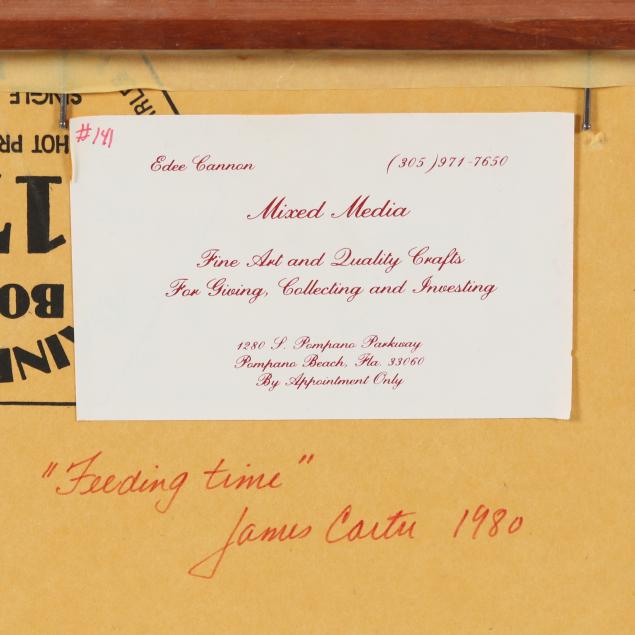 #141
Edee Cannon (305) 971-7650
Mixed Media
Fine Art and Quality Crafts
For Giving, Collecting and Investing
1280 S. Pompano Parkway
Pompano Beach, Fla. 33060
By Appointment Only
SINGLE
HOT PR
17
BO
"Feeding time"
James Carter 1980